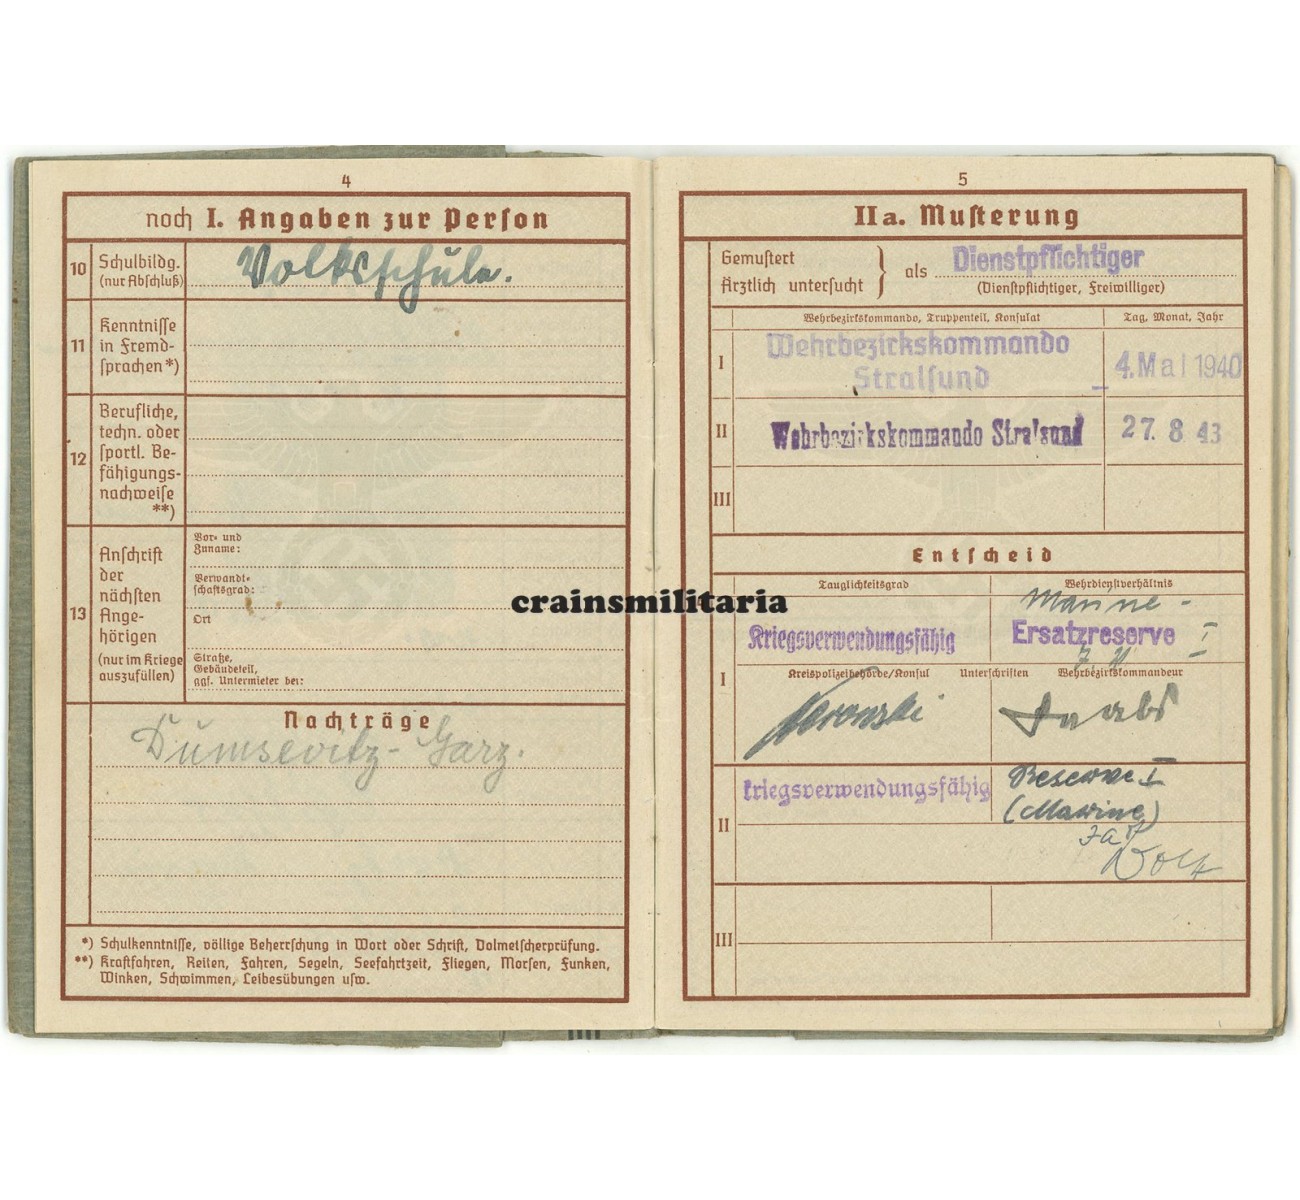 4
noch I. Angaben zur Person
10 Schulbildg. (nur Abschluß) Volksschule.
11 Kenntnisse in Fremdsprachen *)
12 Berufliche, techn. oder sportl. Befähigungsnachweise **)
13 Anschrift der nächsten Angehörigen (nur im Kriege auszufüllen)
Vor- und Zuname:
Verwandtschaftsgrad:
Ort
Straße, Gebäudeteil, ggf. Untermieter bei:
Nachträge
Dumsevitz-Garz.
*) Schulkenntnisse, völlige Beherrschung in Wort oder Schrift, Dolmetscherprüfung.
**) Kraftfahren, Reiten, Fahren, Segeln, Seefahrtzeit, Fliegen, Morsen, Funken,
Winken, Schwimmen, Leibesübungen usw.
5
IIa. Musterung
Gemustert
Ärztlich untersucht } als Dienstpflichtiger
(Dienstpflichtiger, Freiwilliger)
Wehrbezirkskommando, Truppenteil, Konsulat Tag, Monat, Jahr
I Wehrbezirkskommando
Stralsund 4. Mai 1940
II Wehrbezirkskommando Stralsund 27. 8 43
III
Entscheid
Tauglichkeitsgrad Wehrdienstverhältnis
I Kriegsverwendungsfähig Marine-
Ersatzreserve I
Kreispolizeibehörde/Konsul Unterschriften Wehrbezirkskommandeur
II kriegsverwendungsfähig Reserve I
(Marine)
III
crainsmilitaria